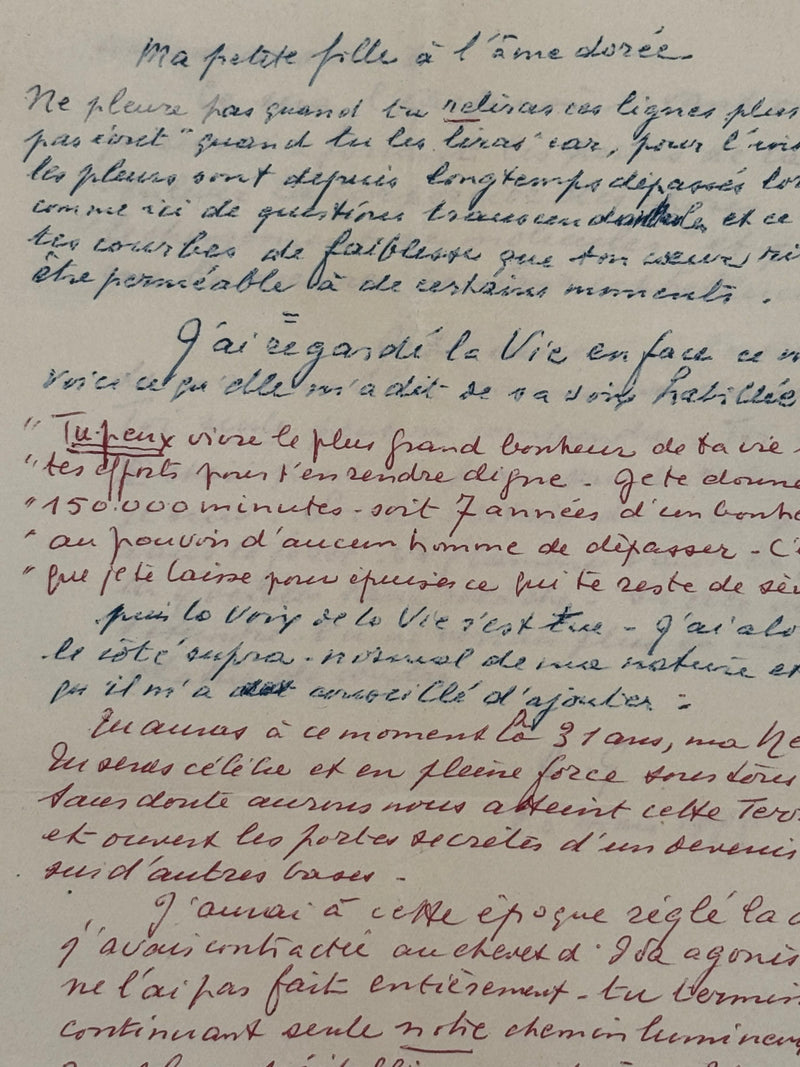 Ma petite fille à l'âme dorée
Ne pleure pas quand tu reliras ces lignes plus
pas écrit "quand tu les liras" car, pour l'
les pleurs sont depuis longtemps dépassés
comme ici de questions transcendantales et ce
tes courbes de faiblesse que ton cœur
être perméable à de certains moments.
J'ai regardé la Vie en face
voici ce qu'elle m'a dit de sa voix habillée
"Tu peux vivre le plus grand bonheur de ta vie
"tes efforts pour t'en rendre digne - Je te donne
"150.000 minutes - soit 7 années d'un
"au pouvoir d'aucun homme de dépasser -
"que je te laisse pour épuiser ce qui te reste de
puis la Voix de la Vie s'est tue - J'ai
le côté supra-normal de ma nature et
qu'il m'a conseillé d'ajouter :
Tu auras à ce moment là 31 ans, ma
Tu seras célèbre et en pleine force sous tous
Sans doute aurons nous atteint cette
et ouvert les portes secrètes d'un devenir
sur d'autres bases -
J'aurai à cette époque réglé la
j'avais contractée au chevet d'Ida
ne l'ai pas fait entièrement - tu
continuant seule notre chemin